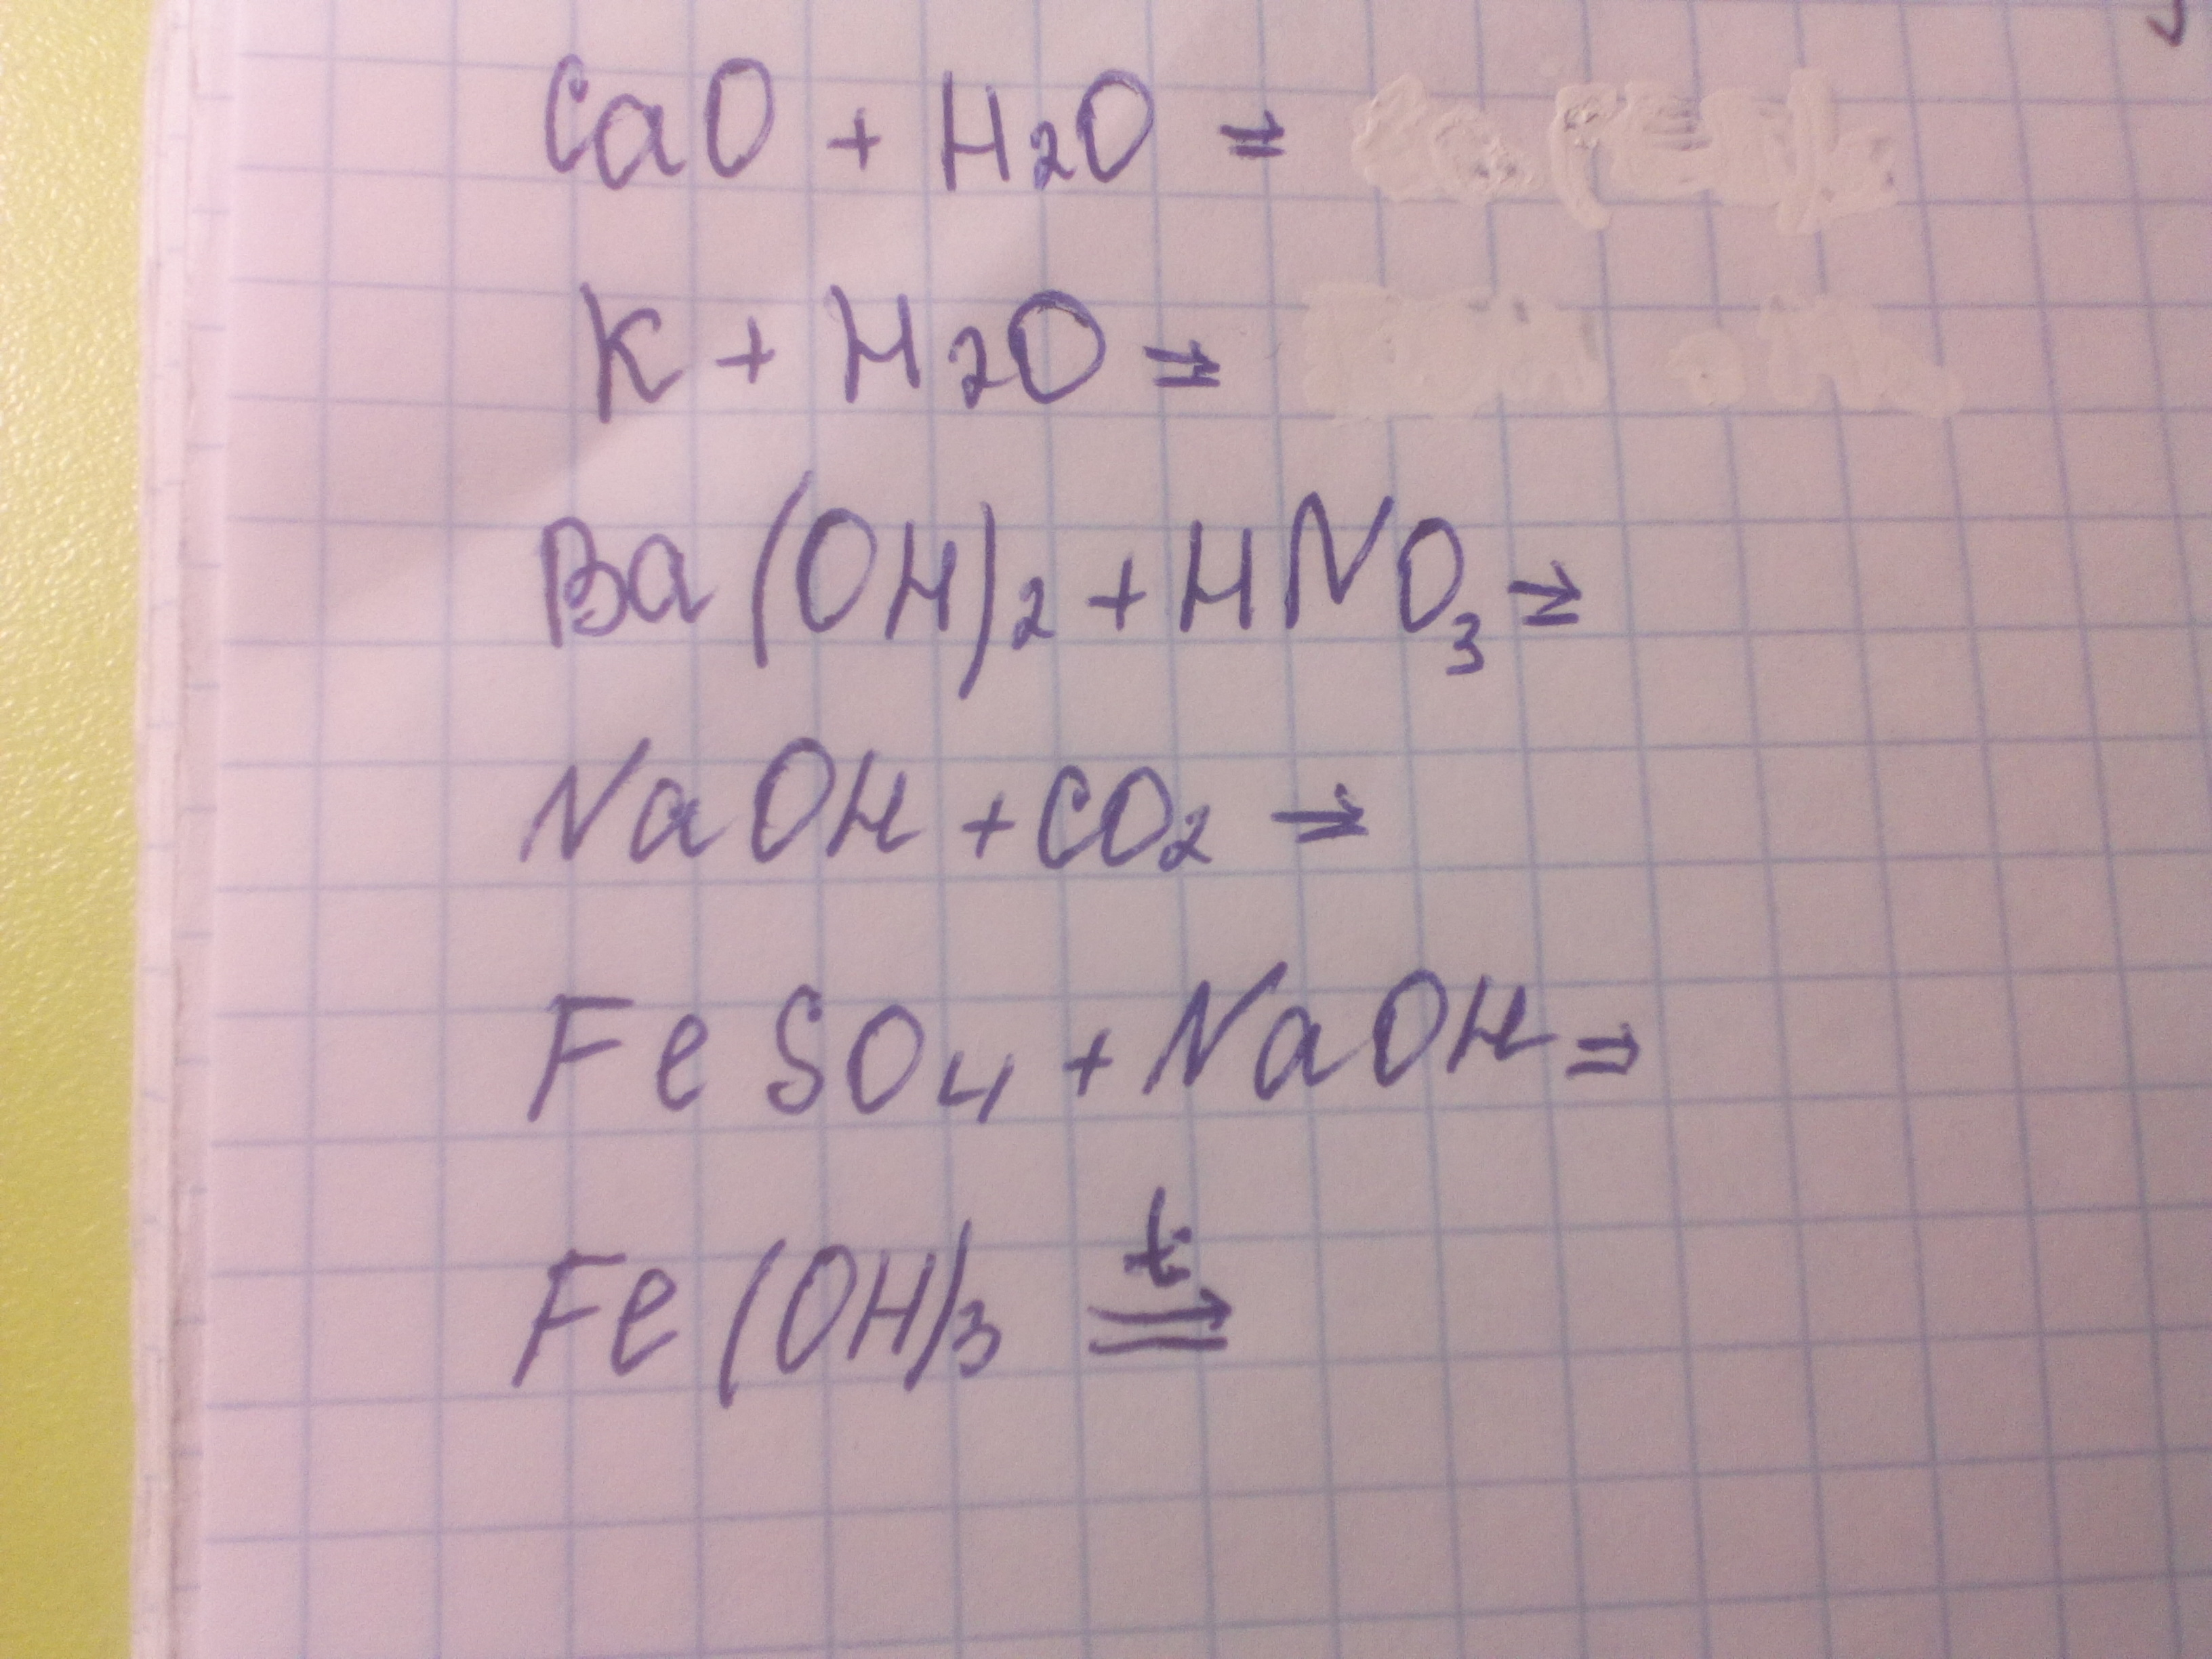 CaO + H2O =
K + H2O =>
Ba(OH)2 + HNO3 =>
NaOH + CO2 =>
FeSO4 + NaOH =>
Fe(OH)3 =t=>